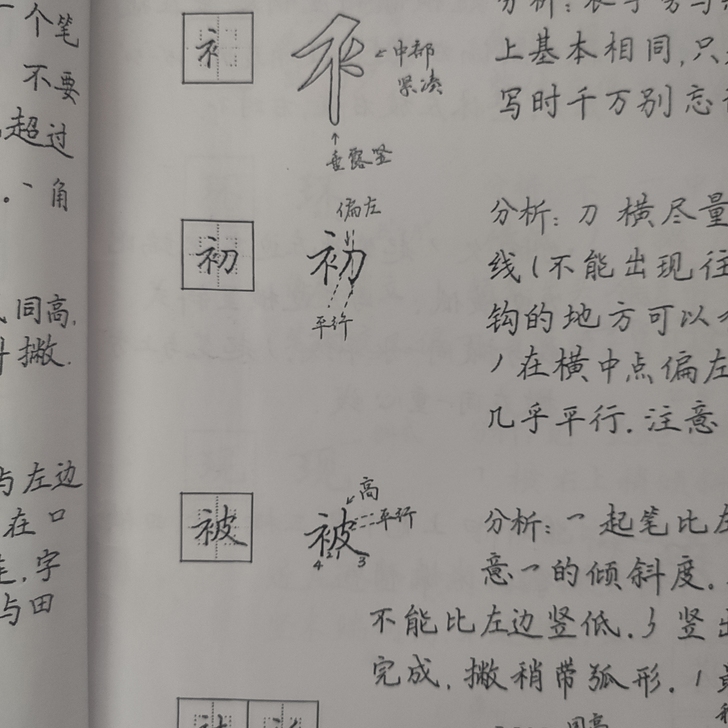 一个笔
不要
超过
。丶角
同高,
撇.
与左边
在口
,字
与田
衤
中部
紧凑
垂露竖
上基本相同,只
写时千万别忘
初
偏左
初
平行
分析:刀横尽量
线(不能出现往
钩的地方可以
丿在横中点偏左
几乎平行.注意
被
高
被
平行
4 2 3
分析:㇀起笔比左
意㇀的倾斜度.
不能比左边竖低.竖
完成,撇稍带弧形.
同高